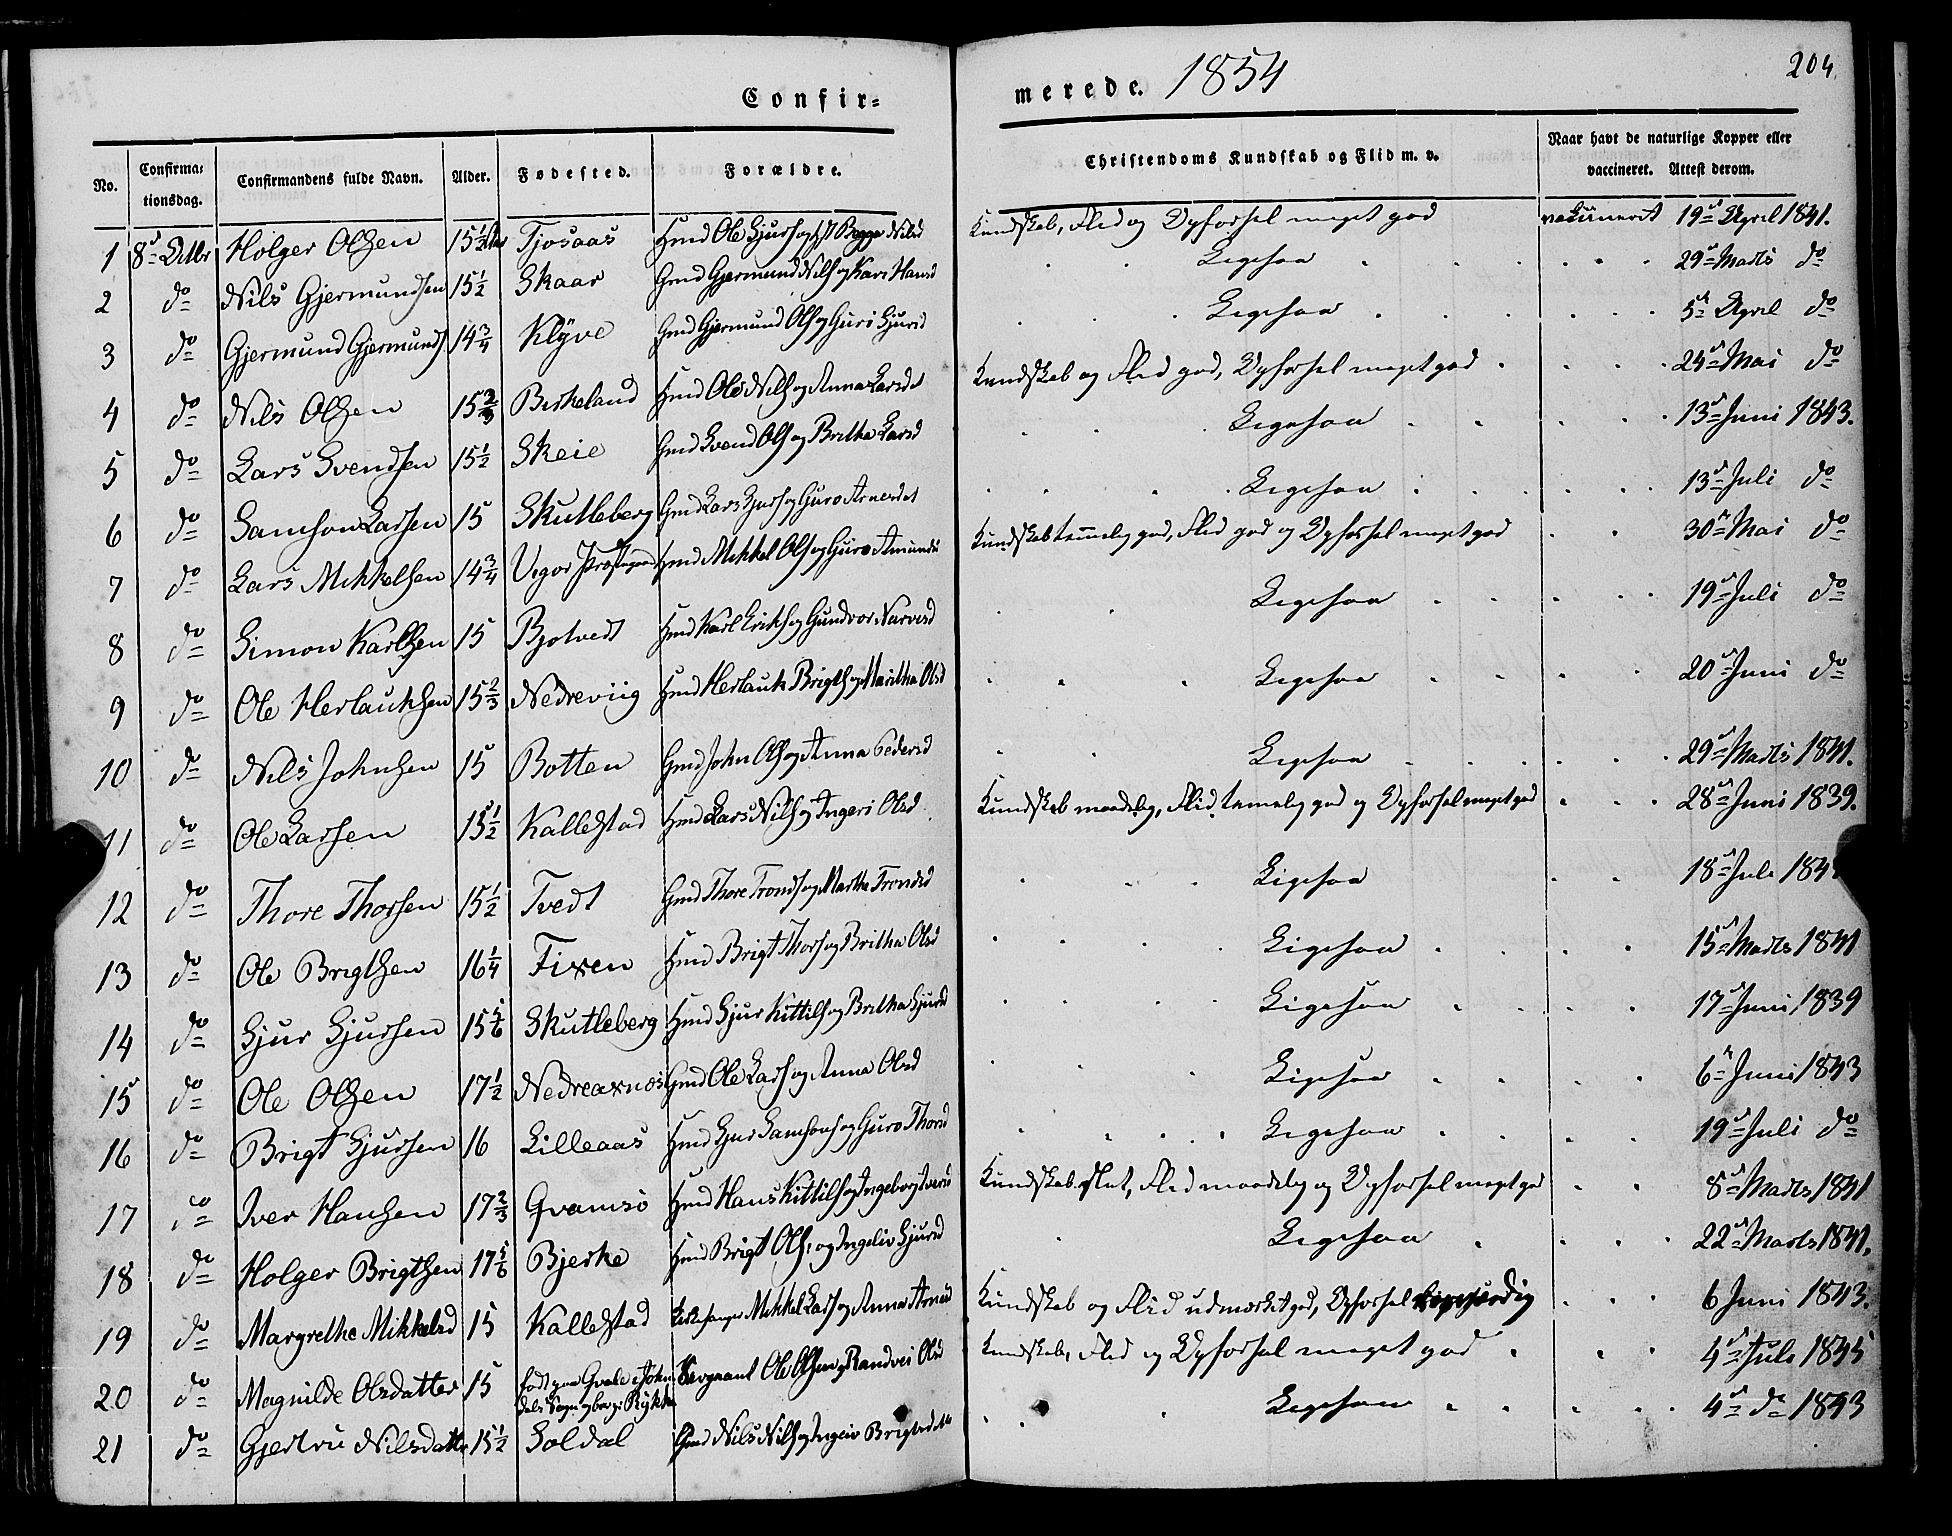 204
Confir-
merede. 1854
No. Confirma-tionsdag. Confirmandens fulde Navn. Alder. Fødested. Forældre. Christendoms Kundskab og Flid m. v. Naar havt de naturlige Kopper eller vaccineret. Attest derom.
1 8d Octbr Holger Olsen 15 1/2 Tjosaas Hmd Ole Sjurs og Nilsd Kundskab, Flid og Opførsel meget god vakcineret 19d April 1841.
2 do Nils Gjermundsen 15 1/2 Skaar Gmd Gjermund Nils og Kari Hansd Ligesaa 29d Marts do
3 do Gjermund Gjermunds 14 3/4 Klyve Gmd Gjermund Ols og Guri Sjursd Ligesaa 5d April do
4 do Nils Olsen 15 2/3 Birkeland Hmd Ole Nils og Anna Larsdt Kundskab og Flid god, Opførsel meget god 24d Mai do
5 do Lars Svendsen 15 1/2 Skeie Gmd Svend Ols og Britha Larsd Ligesaa 13d Juni 1843.
6 do Samson Larsen 15 Skutleberg Gmd Lars Sjurs og Guro Arnesdt Ligesaa 13d Juli do
7 do Lars Mikkelsen 14 3/4 Vigør Hmd Mikkel Ols og Guro Amundsd Kundskab temmelig god, Flid god og Opførsel meget god 30d Mai do
8 do Simon Karlsen 15 Bjotvedt Hmd Karl Eriks og Gundvor Narvesd Ligesaa 19d Juli do
9 do Ole Herlauksen 15 2/3 Nedreviig Hmd Herlauk Brigths og Maritha Olsd Ligesaa 20d Juni do
10 do Nils Johnsen 15 Botten Gmd John Ols og Anna Pedersd Ligesaa 29d Marts 1841.
11 do Ole Larsen 15 1/2 Kallestad Hmd Lars Nils og Ingeri Olsd Kundskab maadelig, Flid temelig god og Opførsel meget god 28d Juni 1839.
12 do Thore Thorsen 15 1/2 Tvedt Gmd Thore Tronds og Martha Trondsd Ligesaa 18d Juli
13 do Ole Brigthsen 16 1/4 Fixen Hmd Brigt Thors og Britha Olsd Ligesaa 15d Marts 1841
14 do Sjur Sjursen 15 5/6 Skutleberg Hmd Sjur Kittils og Britha Sjursd Ligesaa 17d Juni 1839
15 do Ole Olsen 17 1/2 Nedreaxnes Gmd Ole Lars og Anna Olsd Ligesaa 6d Juni 1843
16 do Brigt Sjursen 16 Lilleaas Hmd Sjur Samsons og Guro Thorsd Ligesaa 19d Juli do
17 do Iver Hansen 17 2/3 Qvamsø Hmd Hans Kittils og Ingeborg Iversd Kundskab slet, Flid maadelig og Opførsel meget god 8d Marts 1841
18 do Holger Brigthsen 17 5/6 Bjerke Hmd Brigt Ols og Ingeliv Sjursd Ligesaa 22d Marts 1841.
19 do Margrethe Mikkelsd 15 Kallestad Kirkesanger Mikkel Lars og Anna Arnesd Kundskab og Flid udmærket god, Opførsel 6 Juni 1843.
20 do Magnilde Olsdatter 15 født paa Qvale i Sogn og Rykken Sergeant Ole Olsen og Randvei Olsd Kundskab, Flid og Opførsel meget god 4d Juli 1845
21 do Gjertru Nilsdatter 15 1/2 Soldal Gmd Nils Nils og Ingeiv Brigtsdtr Ligesaa 4d do 1843